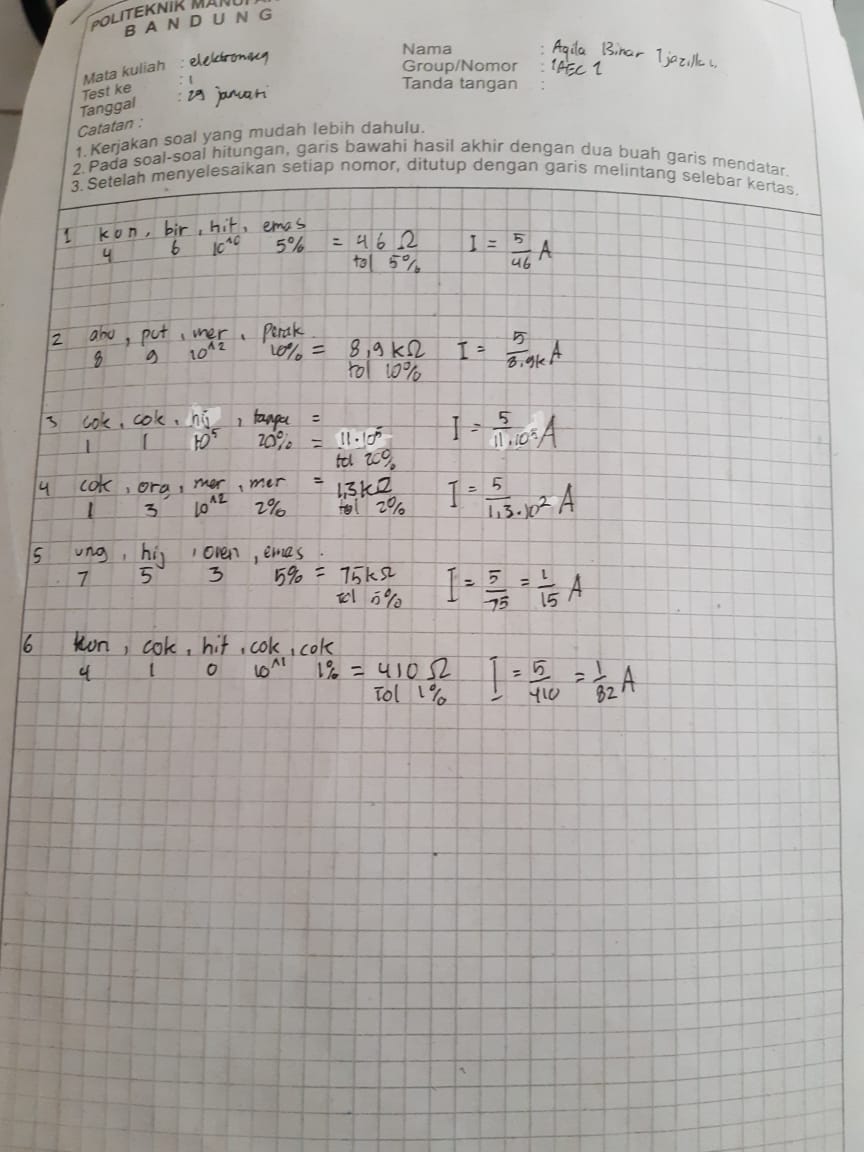 POLITEKNIK MANUFA
BANDUNG
Mata kuliah : elektronika
Test ke : 1
Tanggal : 29 januari
Catatan :
Nama : Aqila Binar
Group/Nomor : 1AEC 1
Tanda tangan :
1. Kerjakan soal yang mudah lebih dahulu.
2. Pada soal-soal hitungan, garis bawahi hasil akhir dengan dua buah garis mendatar.
3. Setelah menyelesaikan setiap nomor, ditutup dengan garis melintang selebar kertas.
1 kon, bir, hit, emas
4 6 10^0 5% = 46 Ω I = 5/46 A
tol 5%
2 abu, put, mer, Perak
8 9 10^2 10% = 8,9 kΩ I = 5/8,9k A
tol 10%
3 cok, cok, hij, tanpa =
1 1 10^5 20% = 11·10^5 I = 5/11·10^5 A
tol 20%
4 cok, ora, mer, mer = 1,3kΩ I = 5/1,3·10^2 A
1 3 10^2 2% tol 2%
5 ung, hij, oren, emas
7 5 3 5% = 75kΩ I = 5/75 = 1/15 A
tol 5%
6 kun, cok, hit, cok, cok
4 1 0 10^1 1% = 410 Ω I = 5/410 = 1/82 A
Tol 1%